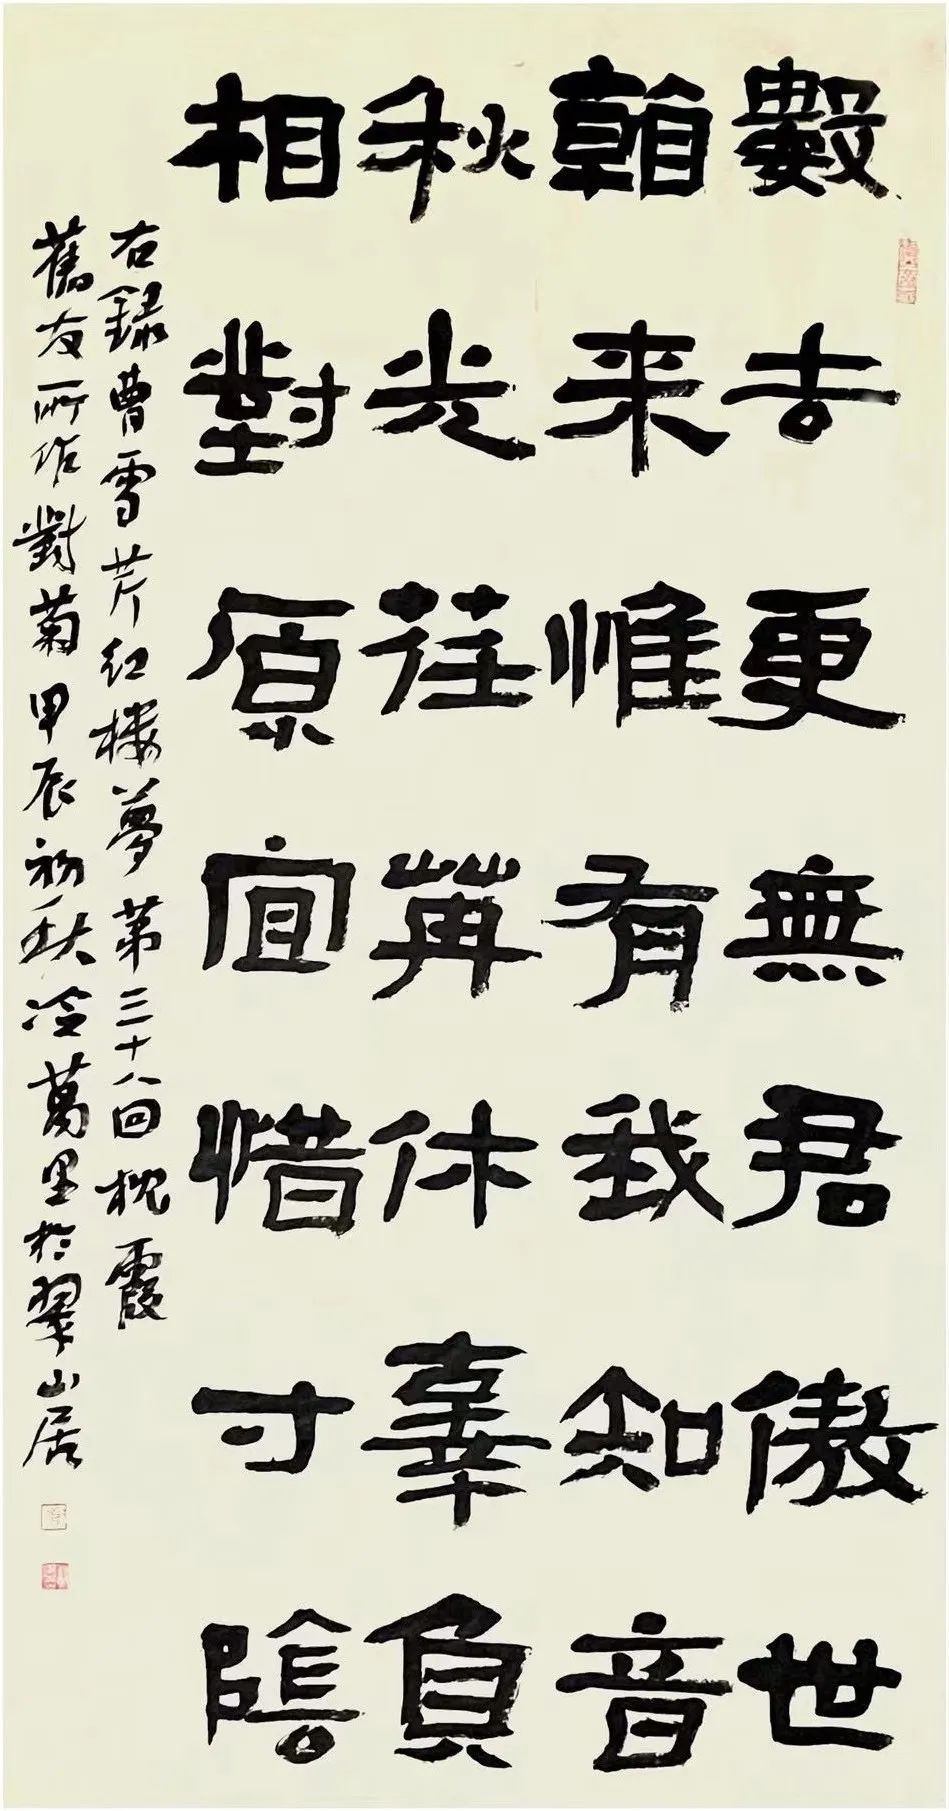 數去更無君傲世
看来惟有我知音
秋光荏苒休辜負
相對原宜惜寸陰
右録曹雪芹红樓夢第三十八回枕霞
舊友所作對菊甲辰初秋冷萬里於翠山居